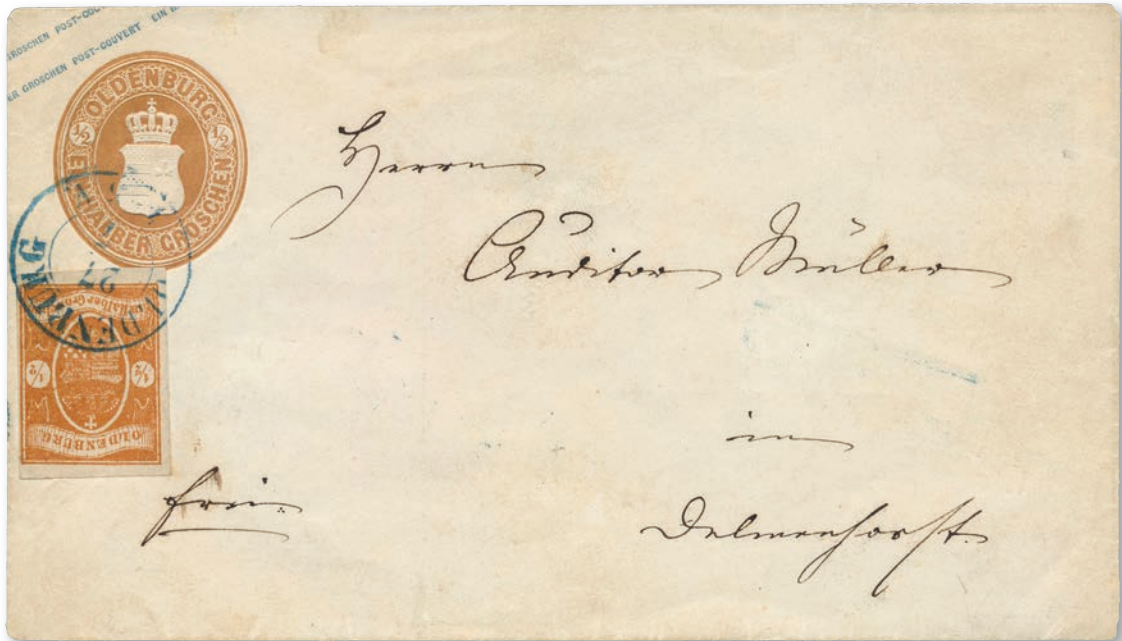 GROSCHEN POST-COUVERT EIN
ER GROSCHEN POST-COUVERT
OLDENBURG
1/2 1/2
EIN HALBER GROSCHEN
OLDENBURG
27
1/2 1/2
OLDENBURG
Herrn
Auditor Müller
in
Delmenhorst.
frei.